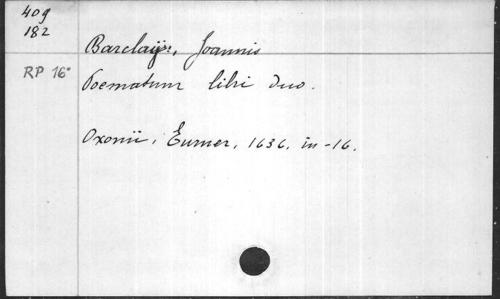 409
182
Barclayi, Joannis
RP 16°
Poematum libri duo.
Oxonii, Eurner, 1636. in-16.